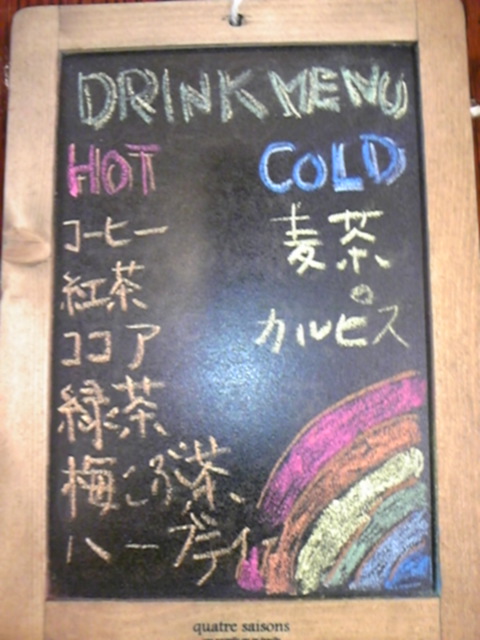 DRINK MENU
HOT
コーヒー
紅茶
ココア
緑茶
梅こぶ茶、
ハーブティー
COLD
麦茶
カルピス
quatre saisons